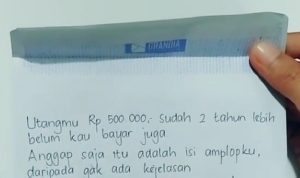 GRANDIA
Utangmu Rp 500 000,- sudah 2 tahun lebih
belum kau bayar juga
Anggap saja itu adalah isi amplopku,
daripada gak ada kejelasan